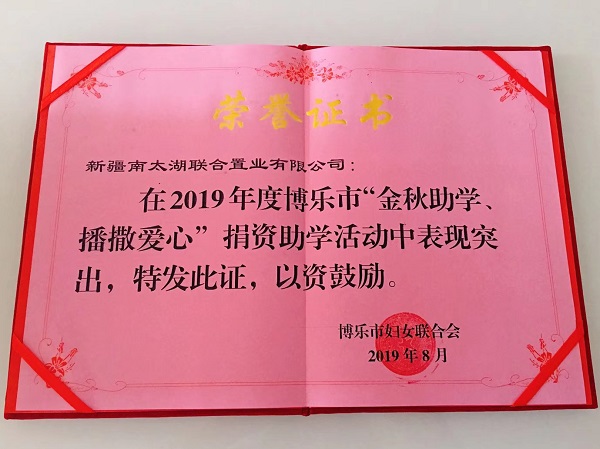 荣誉证书
新疆南太湖联合置业有限公司：
在2019年度博乐市“金秋助学、
播撒爱心”捐资助学活动中表现突
出，特发此证，以资鼓励。
博乐市妇女联合会
2019年8月